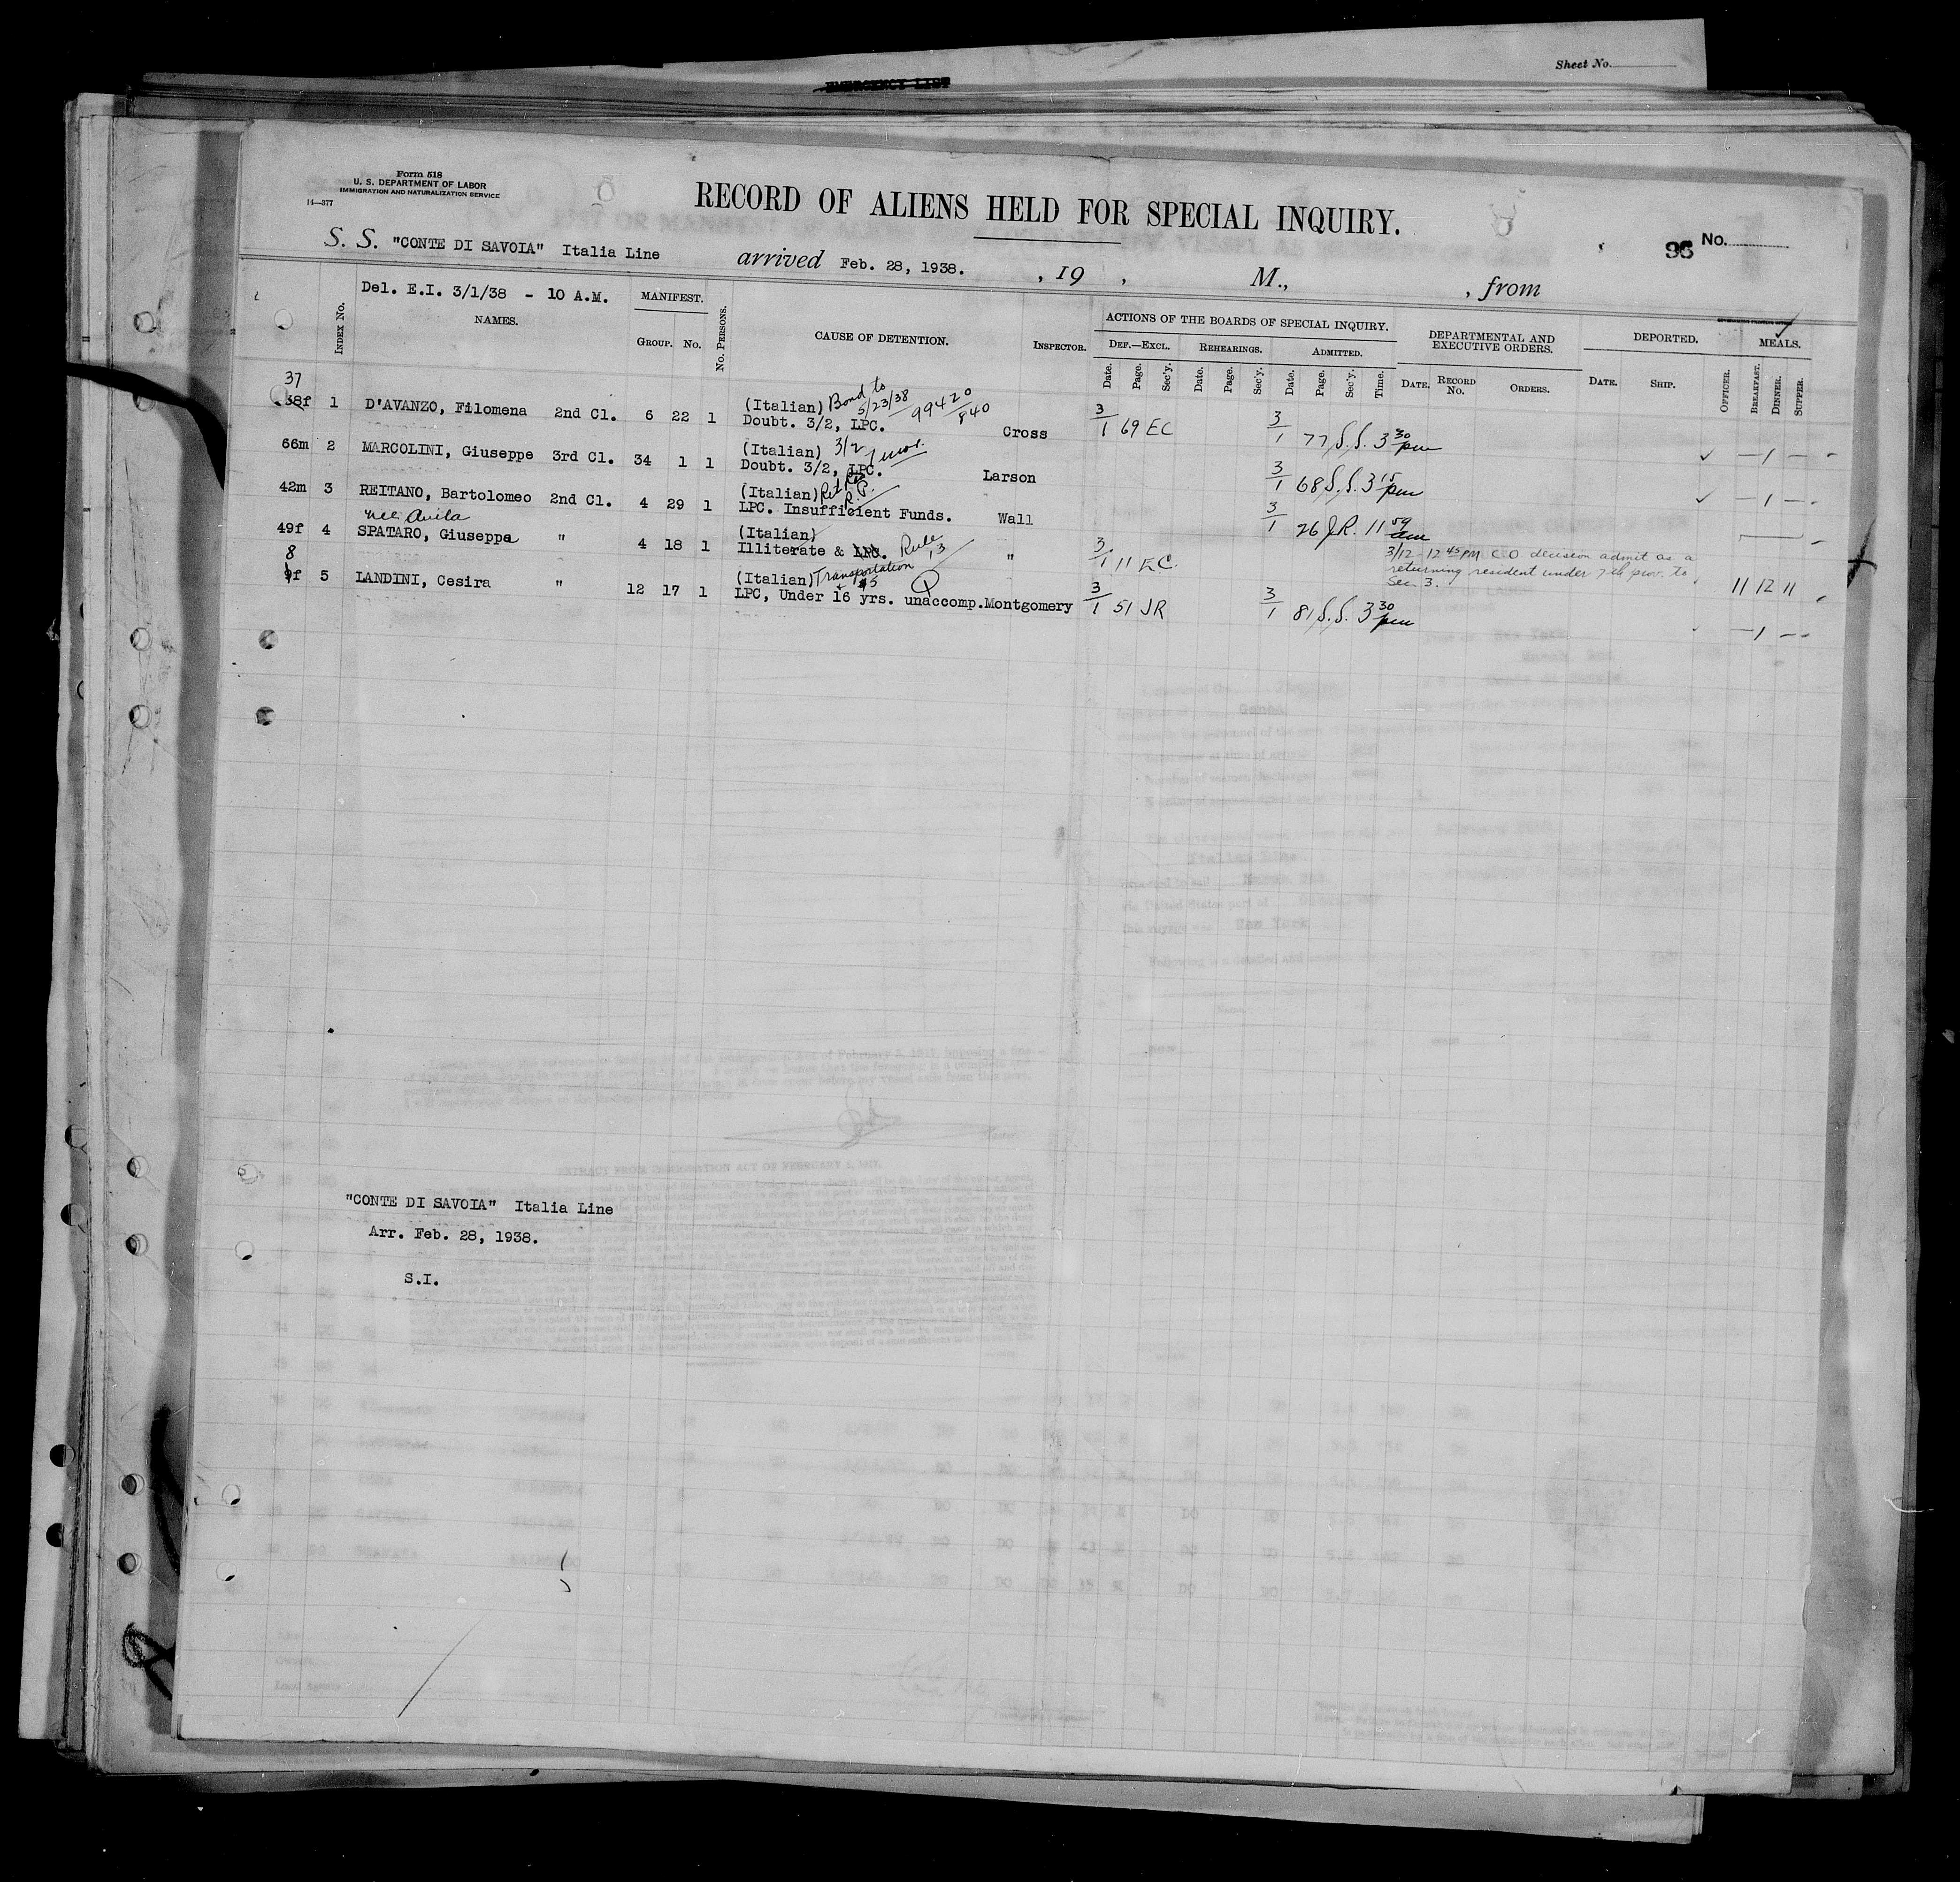 Sheet No.
EMERGENCY LIST
Form 518
U. S. DEPARTMENT OF LABOR
IMMIGRATION AND NATURALIZATION SERVICE
14—377
RECORD OF ALIENS HELD FOR SPECIAL INQUIRY.
36 No.
S. S. "CONTE DI SAVOIA" Italia Line arrived Feb. 28, 1938. , 19 , M., , from
Del. E.I. 3/1/38 - 10 A.M.
INDEX No. NAMES. MANIFEST. GROUP. No. No. PERSONS. CAUSE OF DETENTION. INSPECTOR.
ACTIONS OF THE BOARDS OF SPECIAL INQUIRY. DEPARTMENTAL AND EXECUTIVE ORDERS. DEPORTED. MEALS.
DEF.—EXCL. REHEARINGS. ADMITTED.
Date. Page. Sec'y. Date. Page. Sec'y. Date. Page. Sec'y. Time. DATE. RECORD No. ORDERS. DATE. SHIP. OFFICER. BREAKFAST. DINNER. SUPPER.
37
38f 1 D'AVANZO, Filomena 2nd Cl. 6 22 1 (Italian) Bond to 5/23/38 99420/840
Doubt. 3/2, LPC. Cross 3/1 69 EC 3/1 77 S.S. 3 30 pm
66m 2 MARCOLINI, Giuseppe 3rd Cl. 34 1 1 (Italian) 3/2
Doubt. 3/2, LPC. Larson 3/1 68 S.S. 3 15 pm — 1 —
42m 3 REITANO, Bartolomeo 2nd Cl. 4 29 1 (Italian) R.P.
LPC. Insufficient Funds. Wall 3/1 26 J.R. 11 59 am — 1 —
nee Avila
49f 4 SPATARO, Giuseppa " 4 18 1 (Italian)
Illiterate & LPC. Rule 13 " 3/1 11 EC. 3/12 - 12 45 PM C.O decision admit as a
returning resident under 7th prov. to
Sec 3. 11 12 11
8
9f 5 LANDINI, Cesira " 12 17 1 (Italian) Transportation + $5
LPC, Under 16 yrs. unaccomp. Montgomery 3/1 51 JR 3/1 81 S.S. 3 30 pm — 1 — -
"CONTE DI SAVOIA" Italia Line
Arr. Feb. 28, 1938.
S.I.